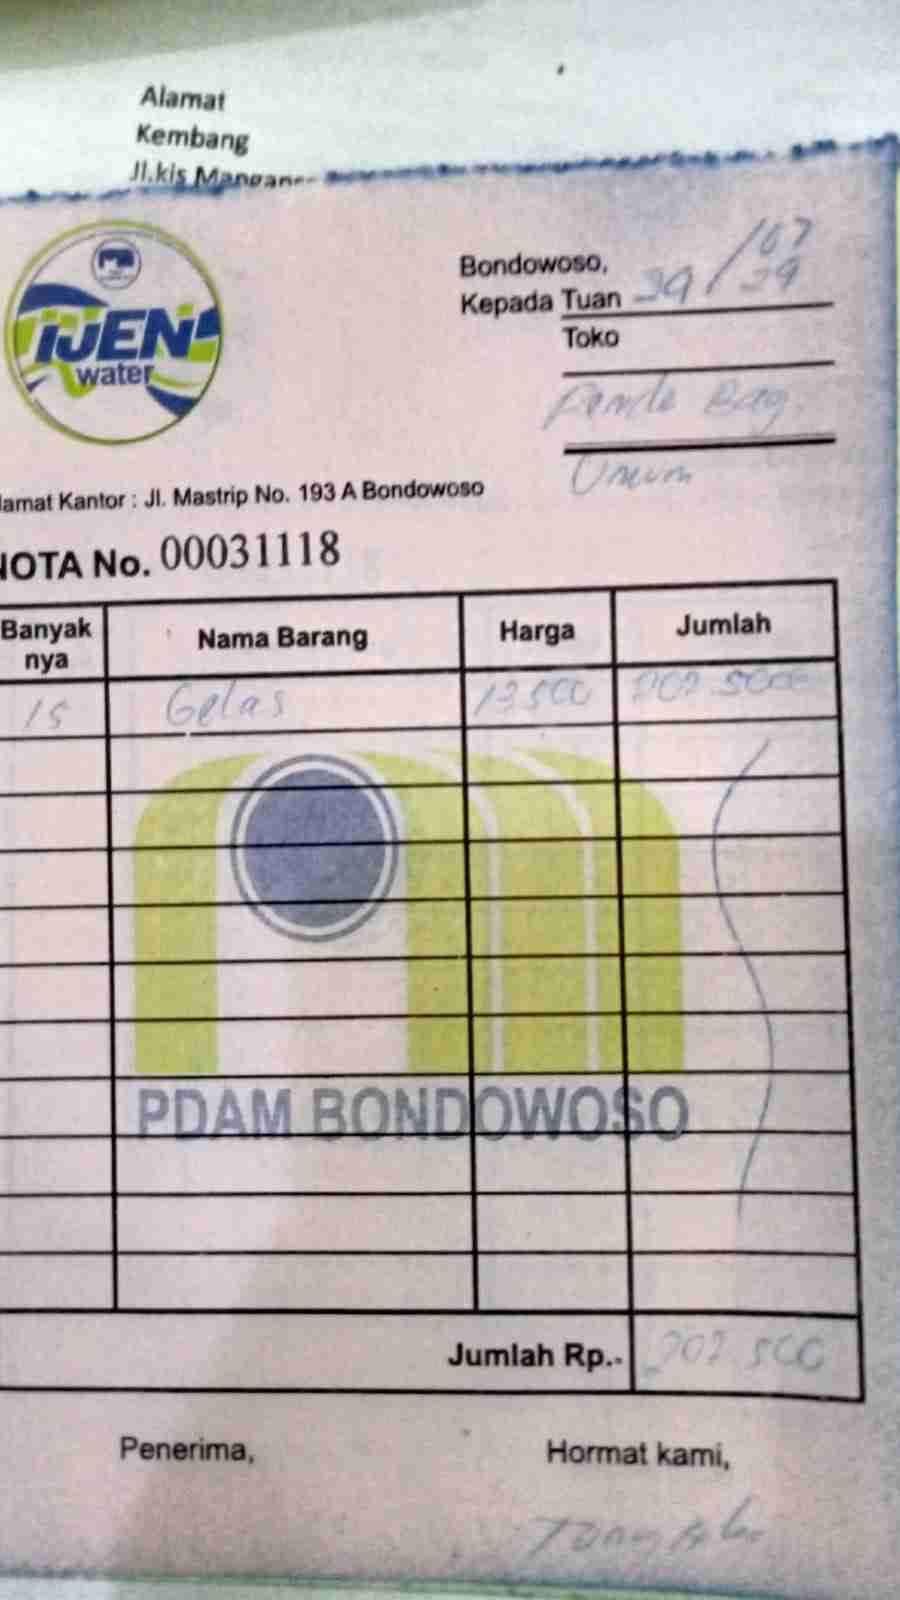 Alamat
Kembang
Jl.kis Mangan
IJEN
water
Bondowoso,
Kepada Tuan
Toko
Bag.
Umum
lamat Kantor : Jl. Mastrip No. 193 A Bondowoso
NOTA No. 00031118
Banyak nya Nama Barang Harga Jumlah
15 Gelas 13.500 202.500
PDAM BONDOWOSO
Jumlah Rp.- 202.500
Penerima, Hormat kami,